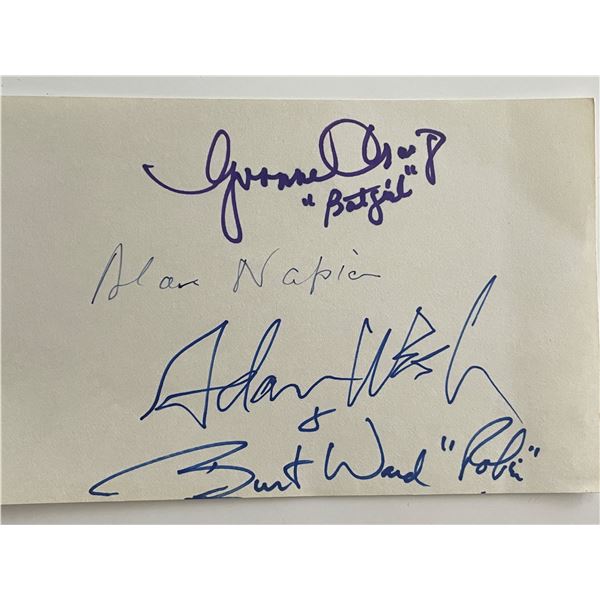 Yvonne Craig
"Batgirl"
Alan Napier
Adam West
&
Burt Ward "Robin"